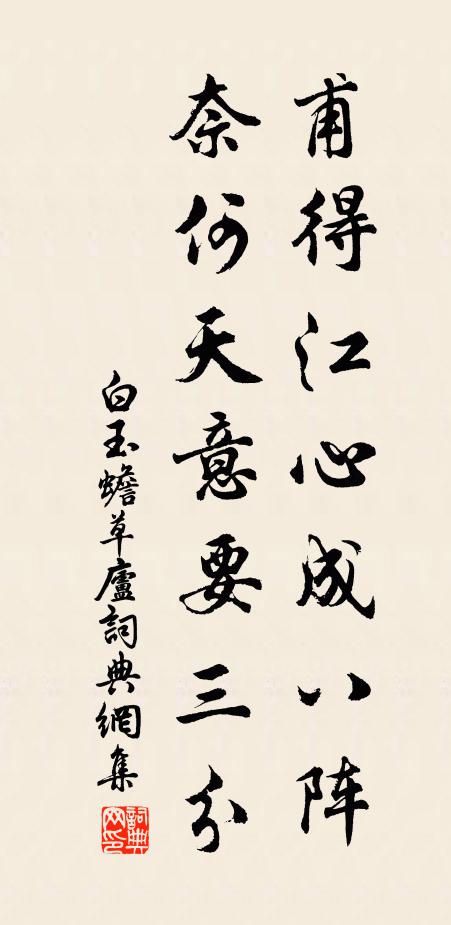 甫得江心成八阵
奈何天意要三分
白玉蟾草廬詞典網集
詞典網印